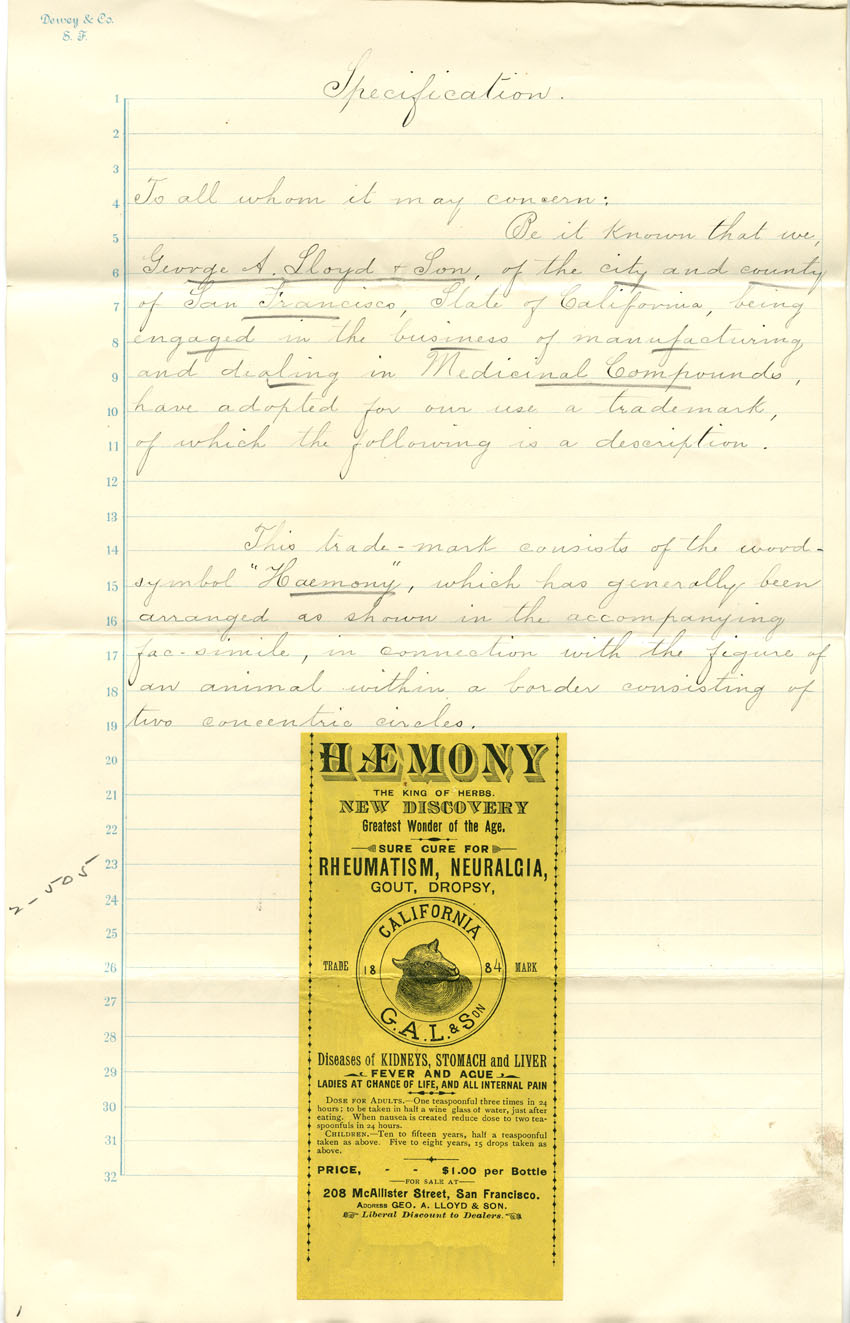 Dewey & Co.
S. F.
Specification.
1
2
3
4 To all whom it may concern:
5 Be it known that we,
6 George A. Lloyd & Son, of the city and county
7 of San Francisco, State of California, being
8 engaged in the business of manufacturing
9 and dealing in Medicinal Compounds,
10 have adopted for our use a trademark,
11 of which the following is a description.
12
13
14 This trade-mark consists of the word-
15 symbol "Haemony", which has generally been
16 arranged as shown in the accompanying
17 fac-simile, in connection with the figure of
18 an animal within a border consisting of
19 two concentric circles.
20
21
22
23
24
25
26
27
28
29
30
31
32
2-505
HÆMONY
THE KING OF HERBS.
NEW DISCOVERY
Greatest Wonder of the Age.
SURE CURE FOR
RHEUMATISM, NEURALGIA,
GOUT, DROPSY,
CALIFORNIA
TRADE 18 84 MARK
G.A.L. & SON
Diseases of KIDNEYS, STOMACH and LIVER
FEVER AND AGUE
LADIES AT CHANGE OF LIFE, AND ALL INTERNAL PAIN
DOSE FOR ADULTS.—One teaspoonful three times in 24
hours; to be taken in half a wine glass of water, just after
eating. When nausea is created reduce dose to two tea-
spoonfuls in 24 hours.
CHILDREN.—Ten to fifteen years, half a teaspoonful
taken as above. Five to eight years, 15 drops taken as
above.
PRICE, - - $1.00 per Bottle
—FOR SALE AT—
208 McAllister Street, San Francisco.
ADDRESS GEO. A. LLOYD & SON.
Liberal Discount to Dealers.
1